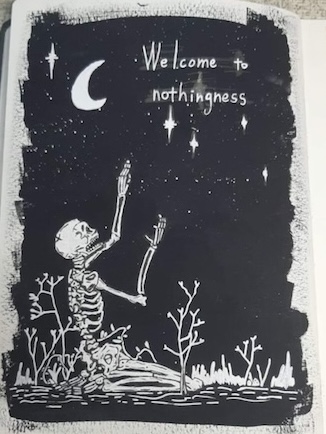 Welcome to
nothingness